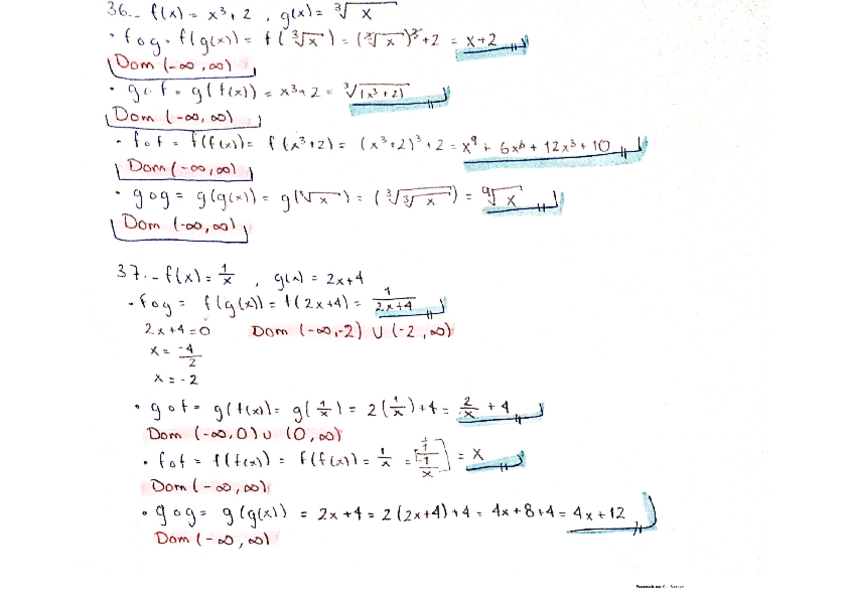 36.- f(x) = x³+2 , g(x) = ∛x
• fog = f(g(x)) = f(∛x) = (∛x)³+2 = x+2
Dom (-∞,∞)
• gof = g(f(x)) = x³+2 = ∛(x³+2)
Dom (-∞,∞)
• fof = f(f(x)) = f(x³+2) = (x³+2)³+2 = x⁹ + 6x⁶ + 12x³ + 10
Dom (-∞,∞)
• gog = g(g(x)) = g(∛x) = (∛∛x) = ⁹√x
Dom (-∞,∞)
37.- f(x) = 1/x , g(x) = 2x+4
• fog = f(g(x)) = f(2x+4) = 1/(2x+4)
2x+4=0 Dom (-∞,-2) ∪ (-2,∞)
x = -4/2
x = -2
• gof = g(f(x)) = g(1/x) = 2(1/x)+4 = 2/x + 4
Dom (-∞,0) ∪ (0,∞)
• fof = f(f(x)) = f(f(x)) = 1/x = [1/(1/x)] = x
Dom (-∞,∞)
• gog = g(g(x)) = 2x+4 = 2(2x+4)+4 = 4x+8+4 = 4x+12
Dom (-∞,∞)